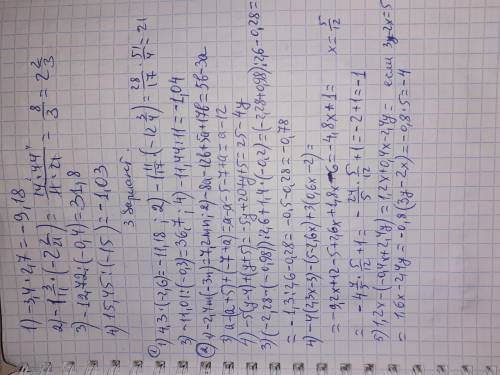 1) -3,4 · 2,7 = -9,18
2) -1 3/11 · (-2 2/21) = 14·44/11·21 = 8/3 = 2 2/3
3) -12,72 : (-0,4) = 31,8
4) 15,45 : (-15) = -1,03
3 Вариант.
① 1) 4,3 · (-2,6) = -11,18 2) -1 11/17 · (-12 3/4) = 28/17 · 51/4 = 21
3) -11,01 : (-0,3) = 36,7; 4) -11,44 : 11 = -1,04
② 1) -2,4 · (-3n) = 7,2 2) -8a - 12b + 5a + 17b = 5b - 3a
3) a - (a + 5) + (-7 + a) = a - a - 5 - 7 + a = a - 12
4) -5(y - 4) + (y + 5) = -5y + 20 + y + 5 = 25 - 4y
3) (-2,28 + (-0,98)) : 2,6 + 1,4 · (-0,2) = (-2,28 + 0,98) : 2,6 - 0,28 =
= -1,3 : 2,6 - 0,28 = -0,5 - 0,28 = -0,78
4) -4(2,3x - 3) - (5 - 2,6x) + 3(0,6x - 2) =
= -9,2x + 12 - 5 + 2,6x + 1,8x - 6 = -4,8x + 1 = x = 5/12
= -4 4/5 · 5/12 + 1 = -24/5 · 5/12 + 1 = -2 + 1 = -1
5) 1,2x - (-0,4x + 2,4y) = 1,2x + 0,4x - 2,4y = если 3y - 2x = 5
= 1,6x - 2,4y = -0,8(3y - 2x) = -0,8 · 5 = -4